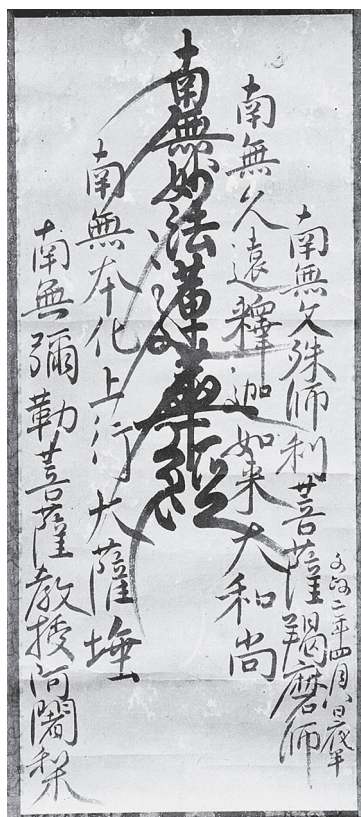 二年四月八日夜半
南無文殊師利菩薩羯磨師
南無久遠釋迦如来大和尚
南無妙法蓮華經
南無本化上行大薩埵
南無彌勒菩薩教授阿闍梨